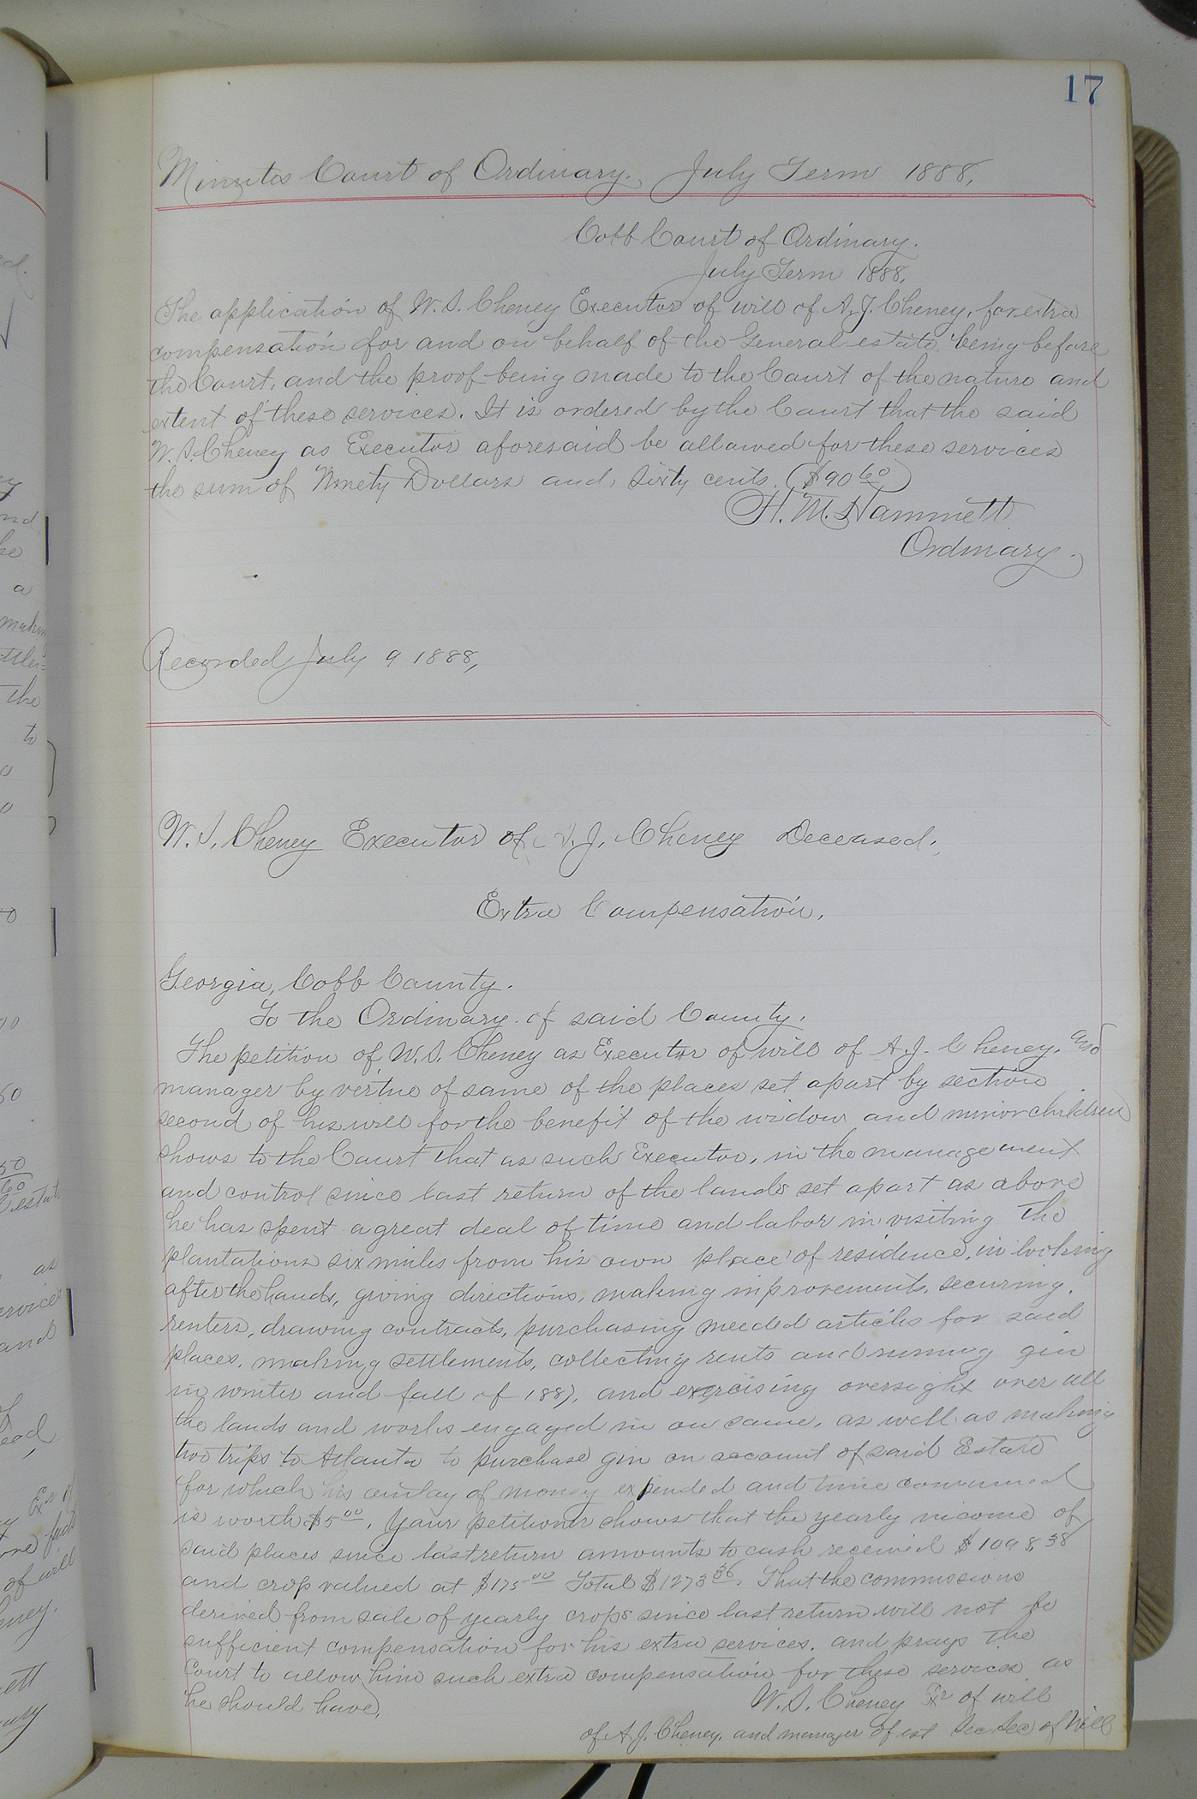 17
Minutes Court of Ordinary. July Term 1888,
Cobb Court of Ordinary.
July Term 1888,
The application of W. S. Cheney Executor of will of A. J. Cheney, for extra
compensation for and on behalf of the General estate being before
the Court, and the proof being made to the Court of the nature and
extent of these services. It is ordered by the Court that the said
W. S. Cheney as Executor aforesaid be allowed for these services
the sum of Ninety Dollars and Sixty cents. ($90 60)
H. M. Hammett
Ordinary.
Recorded July 9 1888,
W. S. Cheney Executor of A. J. Cheney Deceased.
Extra Compensation.
Georgia, Cobb County.
To the Ordinary of said County.
The petition of W. S. Cheney as Executor of will of A. J. Cheney, and
manager by virtue of same of the places set apart by section
second of his will for the benefit of the widow and minor children
shows to the Court that as such Executor, in the management
and control since last return of the lands set apart as above
he has spent a great deal of time and labor in visiting the
plantations six miles from his own place of residence, in looking
after the hands, giving directions, making improvements, securing,
renters, drawing contracts, purchasing needed articles for said
places, making settlements, collecting rents and running gin
in winter and fall of 1887, and exercising oversight over all
the lands and works engaged in on same, as well as making
two trips to Atlanta to purchase gin on account of said Estate
(for which his outlay of money expended and time consumed
is worth $5 00. Your petitioner shows that the yearly income of
said places since last return amounts to cash received $1098,38
and crop valued at $175 00 Total $1273 36. That the commissions
derived from sale of yearly crops since last return will not be
sufficient compensation for his extra services, and prays the
Court to allow him such extra compensation for these services as
he should have,
W. S. Cheney Exr of will
of A. J. Cheney, and manager of est Sec Sec of Will